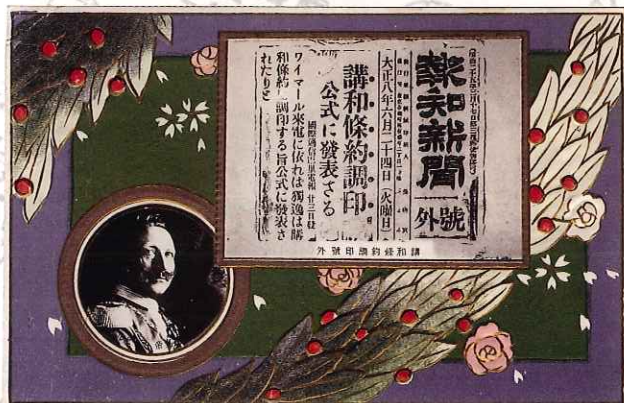 報知新聞
號外
大正八年六月二十四日(火曜日)
講和條約調印
公式に發表さる
廿三日發
ワイマール來電に依れば獨逸は講
和條約に調印する旨公式に發表さ
れたりと
講和條約調印號外
帝